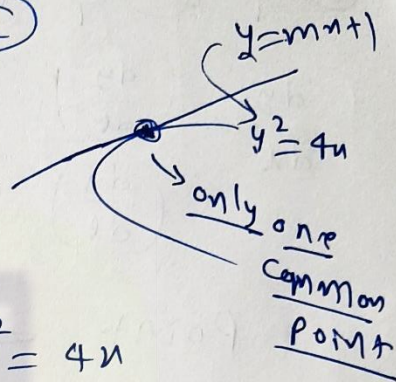 C
y=mx+1
y²=4x
only one
common
point
² = 4x